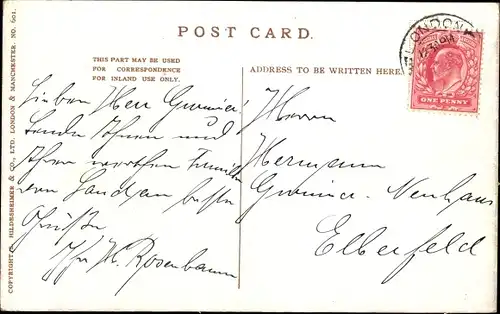 POST CARD.
THIS PART MAY BE USED
FOR CORRESPONDENCE
FOR INLAND USE ONLY.
ADDRESS TO BE WRITTEN HERE.
COPYRIGHT. HILDESHEIMER & CO., LTD. LONDON & MANCHESTER. NO. 601.
LONDON
ONE PENNY
Lieber Herr
Sende Ihnen und
Ihrer werthen Familie
von London beste
Grüße
Ihr Rosenbaum
Herrn
Hermann
Neuhaus
Elberfeld